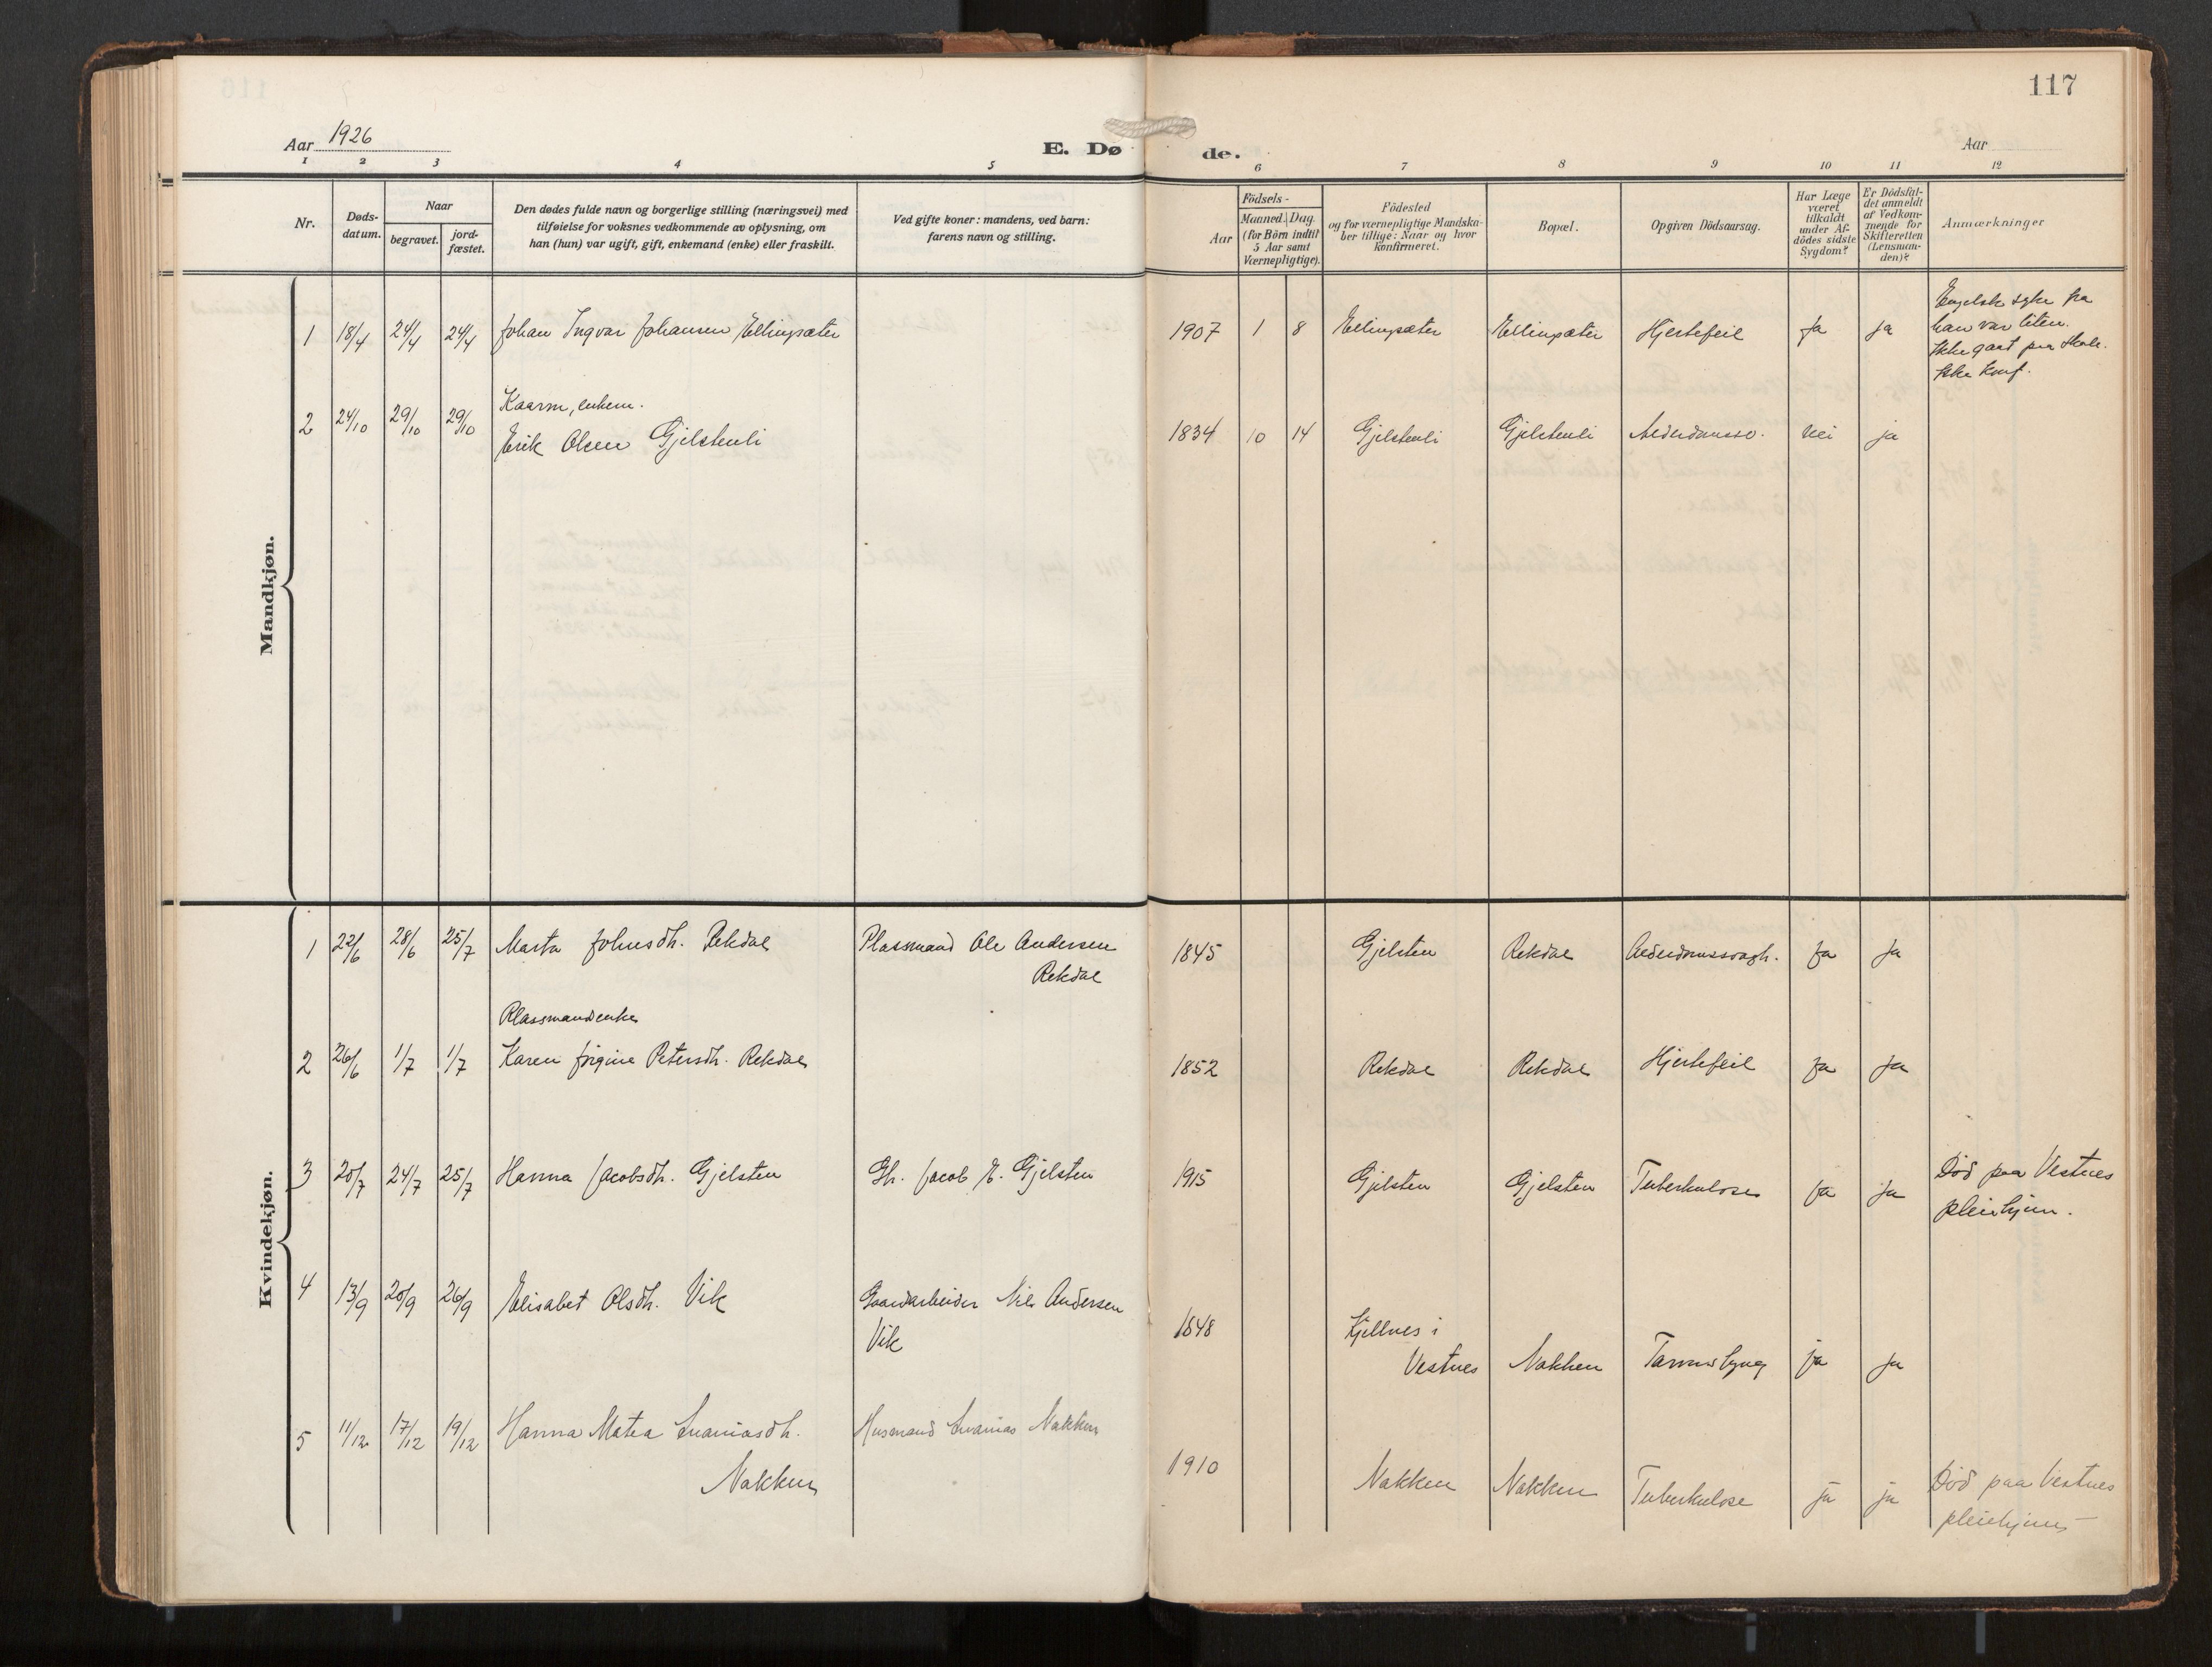 117
Aar 1926
E. Dø de.
Aar
1 2 3 4 5 6 7 8 9 10 11 12
Nr.
Døds-
datum.
Naar
begravet.
jord-
fæstet.
Den dødes fulde navn og borgerlige stilling (næringsvei) med
tilføielse for voksnes vedkommende av oplysning, om
han (hun) var ugift, gift, enkemand (enke) eller fraskilt.
Ved gifte koner: mandens, ved barn:
farens navn og stilling.
Aar
Födsels-
Maaned. Dag.
(for Börn indtil
5 Aar samt
Værnepligtige).
Födested
og for værnepligtige Mandska-
ber tillige: Naar og hvor
konfirmeret.
Bopæl.
Opgiven Dödsaarsag.
Har Læge
været
tilkaldt
under Af-
dödes sidste
Sygdom?
Er Dödsfal-
det anmeldt
af Vedkom-
mende for
Skifteretten
(Lensman-
den)?
Anmærkninger
Mandkjøn.
1 18/4 24/4 24/4 Johan Ingvar Johansen Ellingsæter 1907 1 8 Ellingsæter Ellingsæter Hjertefeil Ja ja
Engelsk syke fra
han var liten.
Ikke gaat paa skole.
Ikke konf.
Kaarm, enkem.
2 24/10 29/10 29/10 Erik Olsen Gjelstenli 1834 10 14 Gjelstenli Gjelstenli Alderdomssv. nei ja
Kvindekjøn.
1 22/6 28/6 25/7 Marta Johnsdh. Rekdal Plassmand Ole Andersen
Rekdal
1845 Gjelsten Rekdal Alderdomssvagh. Ja Ja
Plassmandsenke
2 26/6 1/7 1/7 Karen Jørgine Petersdh. Rekdal 1852 Rekdal Rekdal Hjertefeil Ja Ja
3 20/7 24/7 25/7 Hanna Jacobsdh. Gjelsten Gbr. Jacob E. Gjelsten 1915 Gjelsten Gjelsten Tuberkulose Ja Ja
Död paa Vestnes
pleiehjem.
4 13/9 20/9 26/9 Elisabet Olsdh. Vik Gaardarbeider Nils Andersen
Vik
1848 Kjellnes i
Vestnes Nakken Tarmslyng ja Ja
5 11/12 17/12 19/12 Hanna Matea Ananiasdh.
Nakken
Husmand Ananias Nakken
1910 Nakken Nakken Tuberkulose ja ja
Död paa Vestnes
pleiehjem